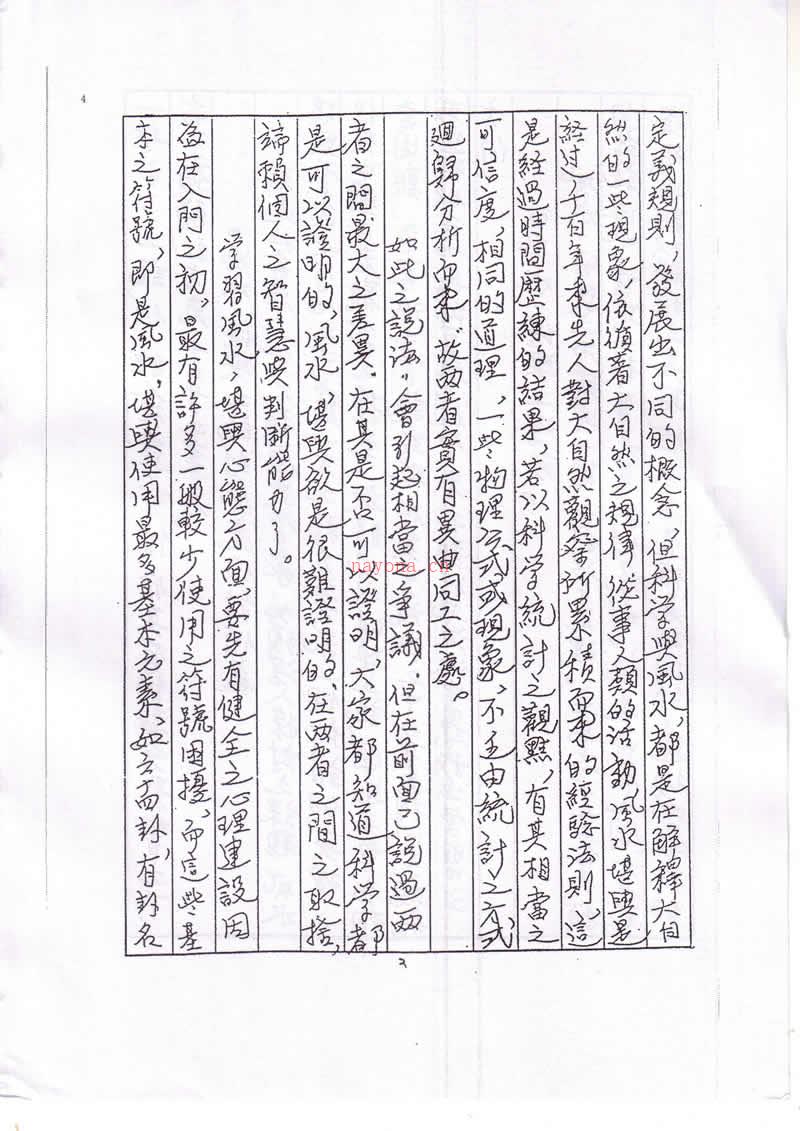 4
定義規則,發展出不同的概念,但科学與風水,都是在解釋大自
然的一些現象,依循著大自然之規律從事人類的活動,風水堪輿是
經过千百年來先人對大自然觀察所累積而來的經驗法則,這
是經過時間歷練的結果,若以科学統計之觀點,有其相當之
可信度,相同的道理,一些物理公式或現象,不也由統計之方式
迴歸分析而來,故両者實有異曲同工之處。
如此之說法,會引起相當之爭議,但在前面已說過両
者之間最大之差異,在其是否可以證明,大家都知道科学都
是可以證明的,風水,堪輿欲是很難證明的,在両者之間之取捨,
端賴個人之智慧與判断能力了。
学習風水,堪輿心態方面,要先有健全之心理建設因
為在入門之初,最有許多一般較少使用之符號困擾,而這些基
本之符號,即是風水,堪輿使用最多基本元素,如六十四卦,有卦名
2
nayona.cn